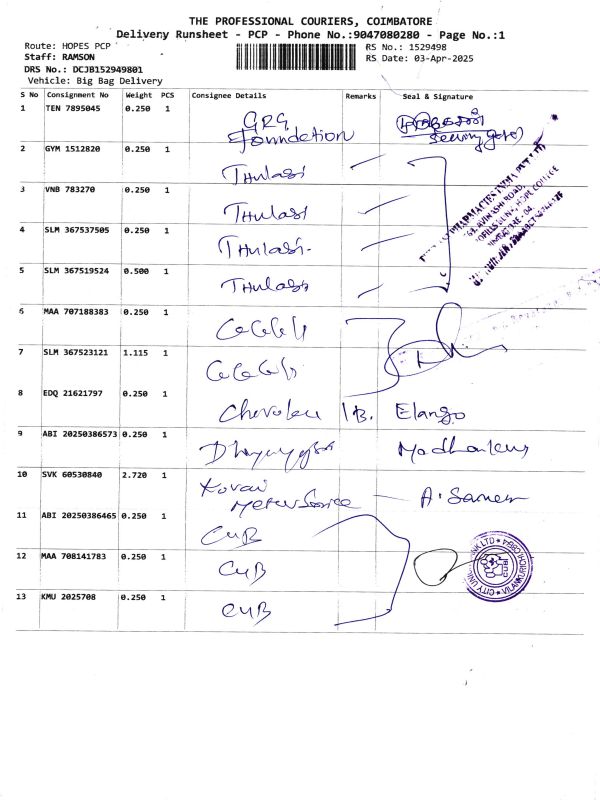 THE PROFESSIONAL COURIERS, COIMBATORE
Delivery Runsheet - PCP - Phone No.:9047080280 - Page No.:1
Route: HOPES PCP
Staff: RAMSON
DRS No.: DCJB152949801
Vehicle: Big Bag Delivery
RS No.: 1529498
RS Date: 03-Apr-2025
S No Consignment No Weight PCS Consignee Details Remarks Seal & Signature
1 TEN 7895045 0.250 1 GRG
Foundation
2 GYM 1512820 0.250 1 Thulasi
3 VNB 783270 0.250 1 Thulasi
4 SLM 367537505 0.250 1 Thulasi
5 SLM 367519524 0.500 1 Thulasi
6 MAA 707188383 0.250 1
7 SLM 367523121 1.115 1
8 EDQ 21621797 0.250 1 B. Elango
9 ABI 20250386573 0.250 1
10 SVK 60530840 2.720 1 Kovai
11 ABI 20250386465 0.250 1 CUB
12 MAA 708141783 0.250 1 CUB
13 KMU 2025708 0.250 1 CUB
CUB